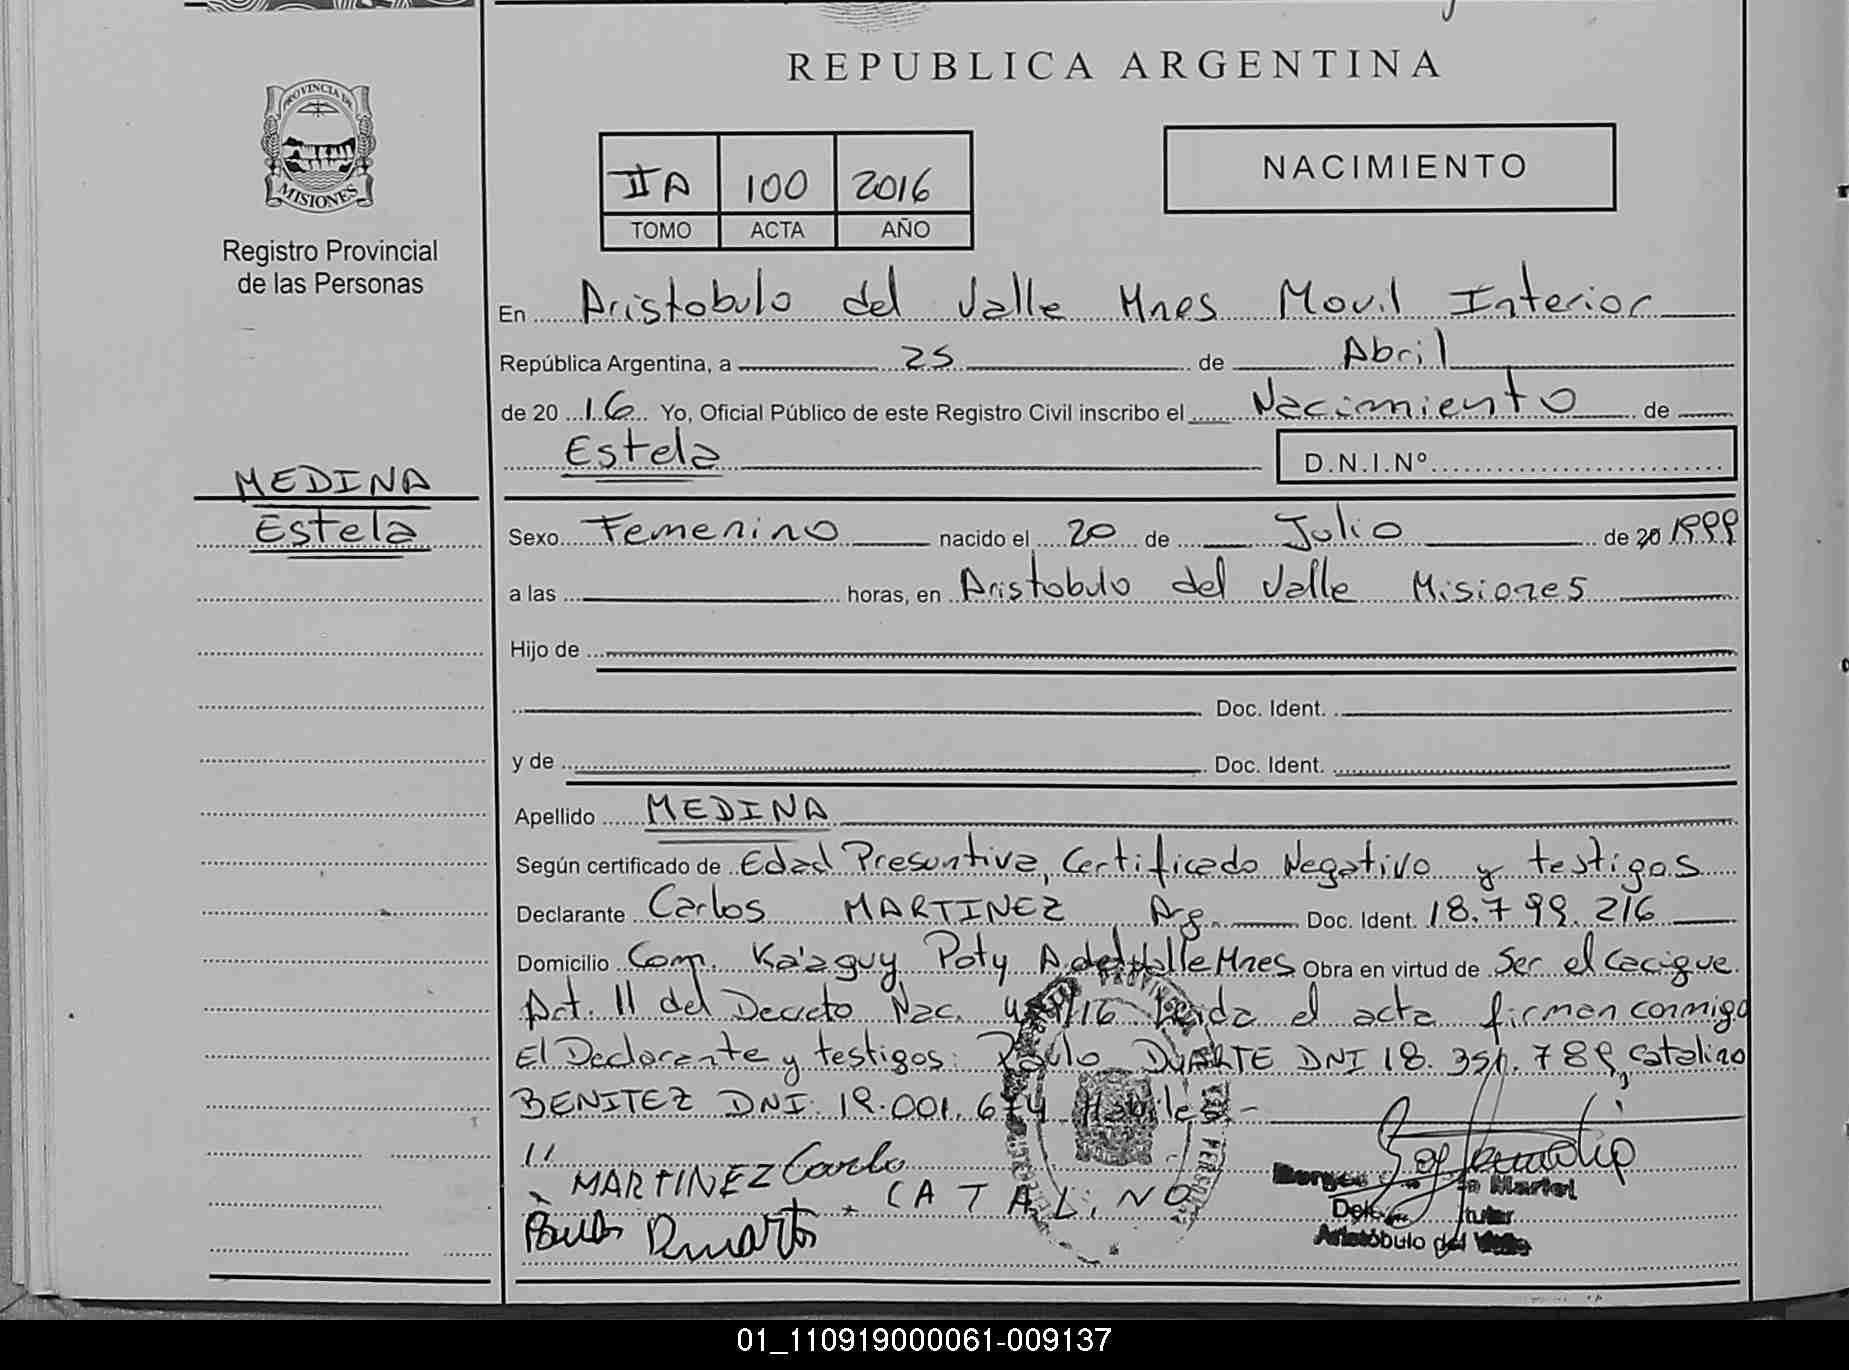 REPUBLICA ARGENTINA
PROVINCIA DE
MISIONES
Registro Provincial
de las Personas
IIA 100 2016
TOMO ACTA AÑO
NACIMIENTO
En Aristobulo del Valle Mnes Movil Interior
República Argentina, a 25 de Abril
de 20 16 Yo, Oficial Público de este Registro Civil inscribo el Nacimiento de
Estela D.N.I.Nº
MEDINA
Estela
Sexo Femenino nacido el 20 de Julio de 20 1999
a las horas, en Aristobulo del Valle Misiones
Hijo de
Doc. Ident.
y de Doc. Ident.
Apellido MEDINA
Según certificado de Edad Presuntiva, Certificado Negativo y testigos
Declarante Carlos MARTINEZ Arg. Doc. Ident. 18.799.216
Domicilio Com. Ka'aguy Poty A. del Valle Mnes Obra en virtud de Ser el Cacique
Art. 11 del Decreto Nac. Leida el acta firman conmigo
El Declarante y testigos: DUARTE DNI 18. 789, Catalino
BENITEZ DNI: 19.001.674 Habiles-
MARTINEZ Carlo
CATALiNO
Duarte
Borges Mariel
Titular
Aristóbulo del Valle
01_110919000061-009137